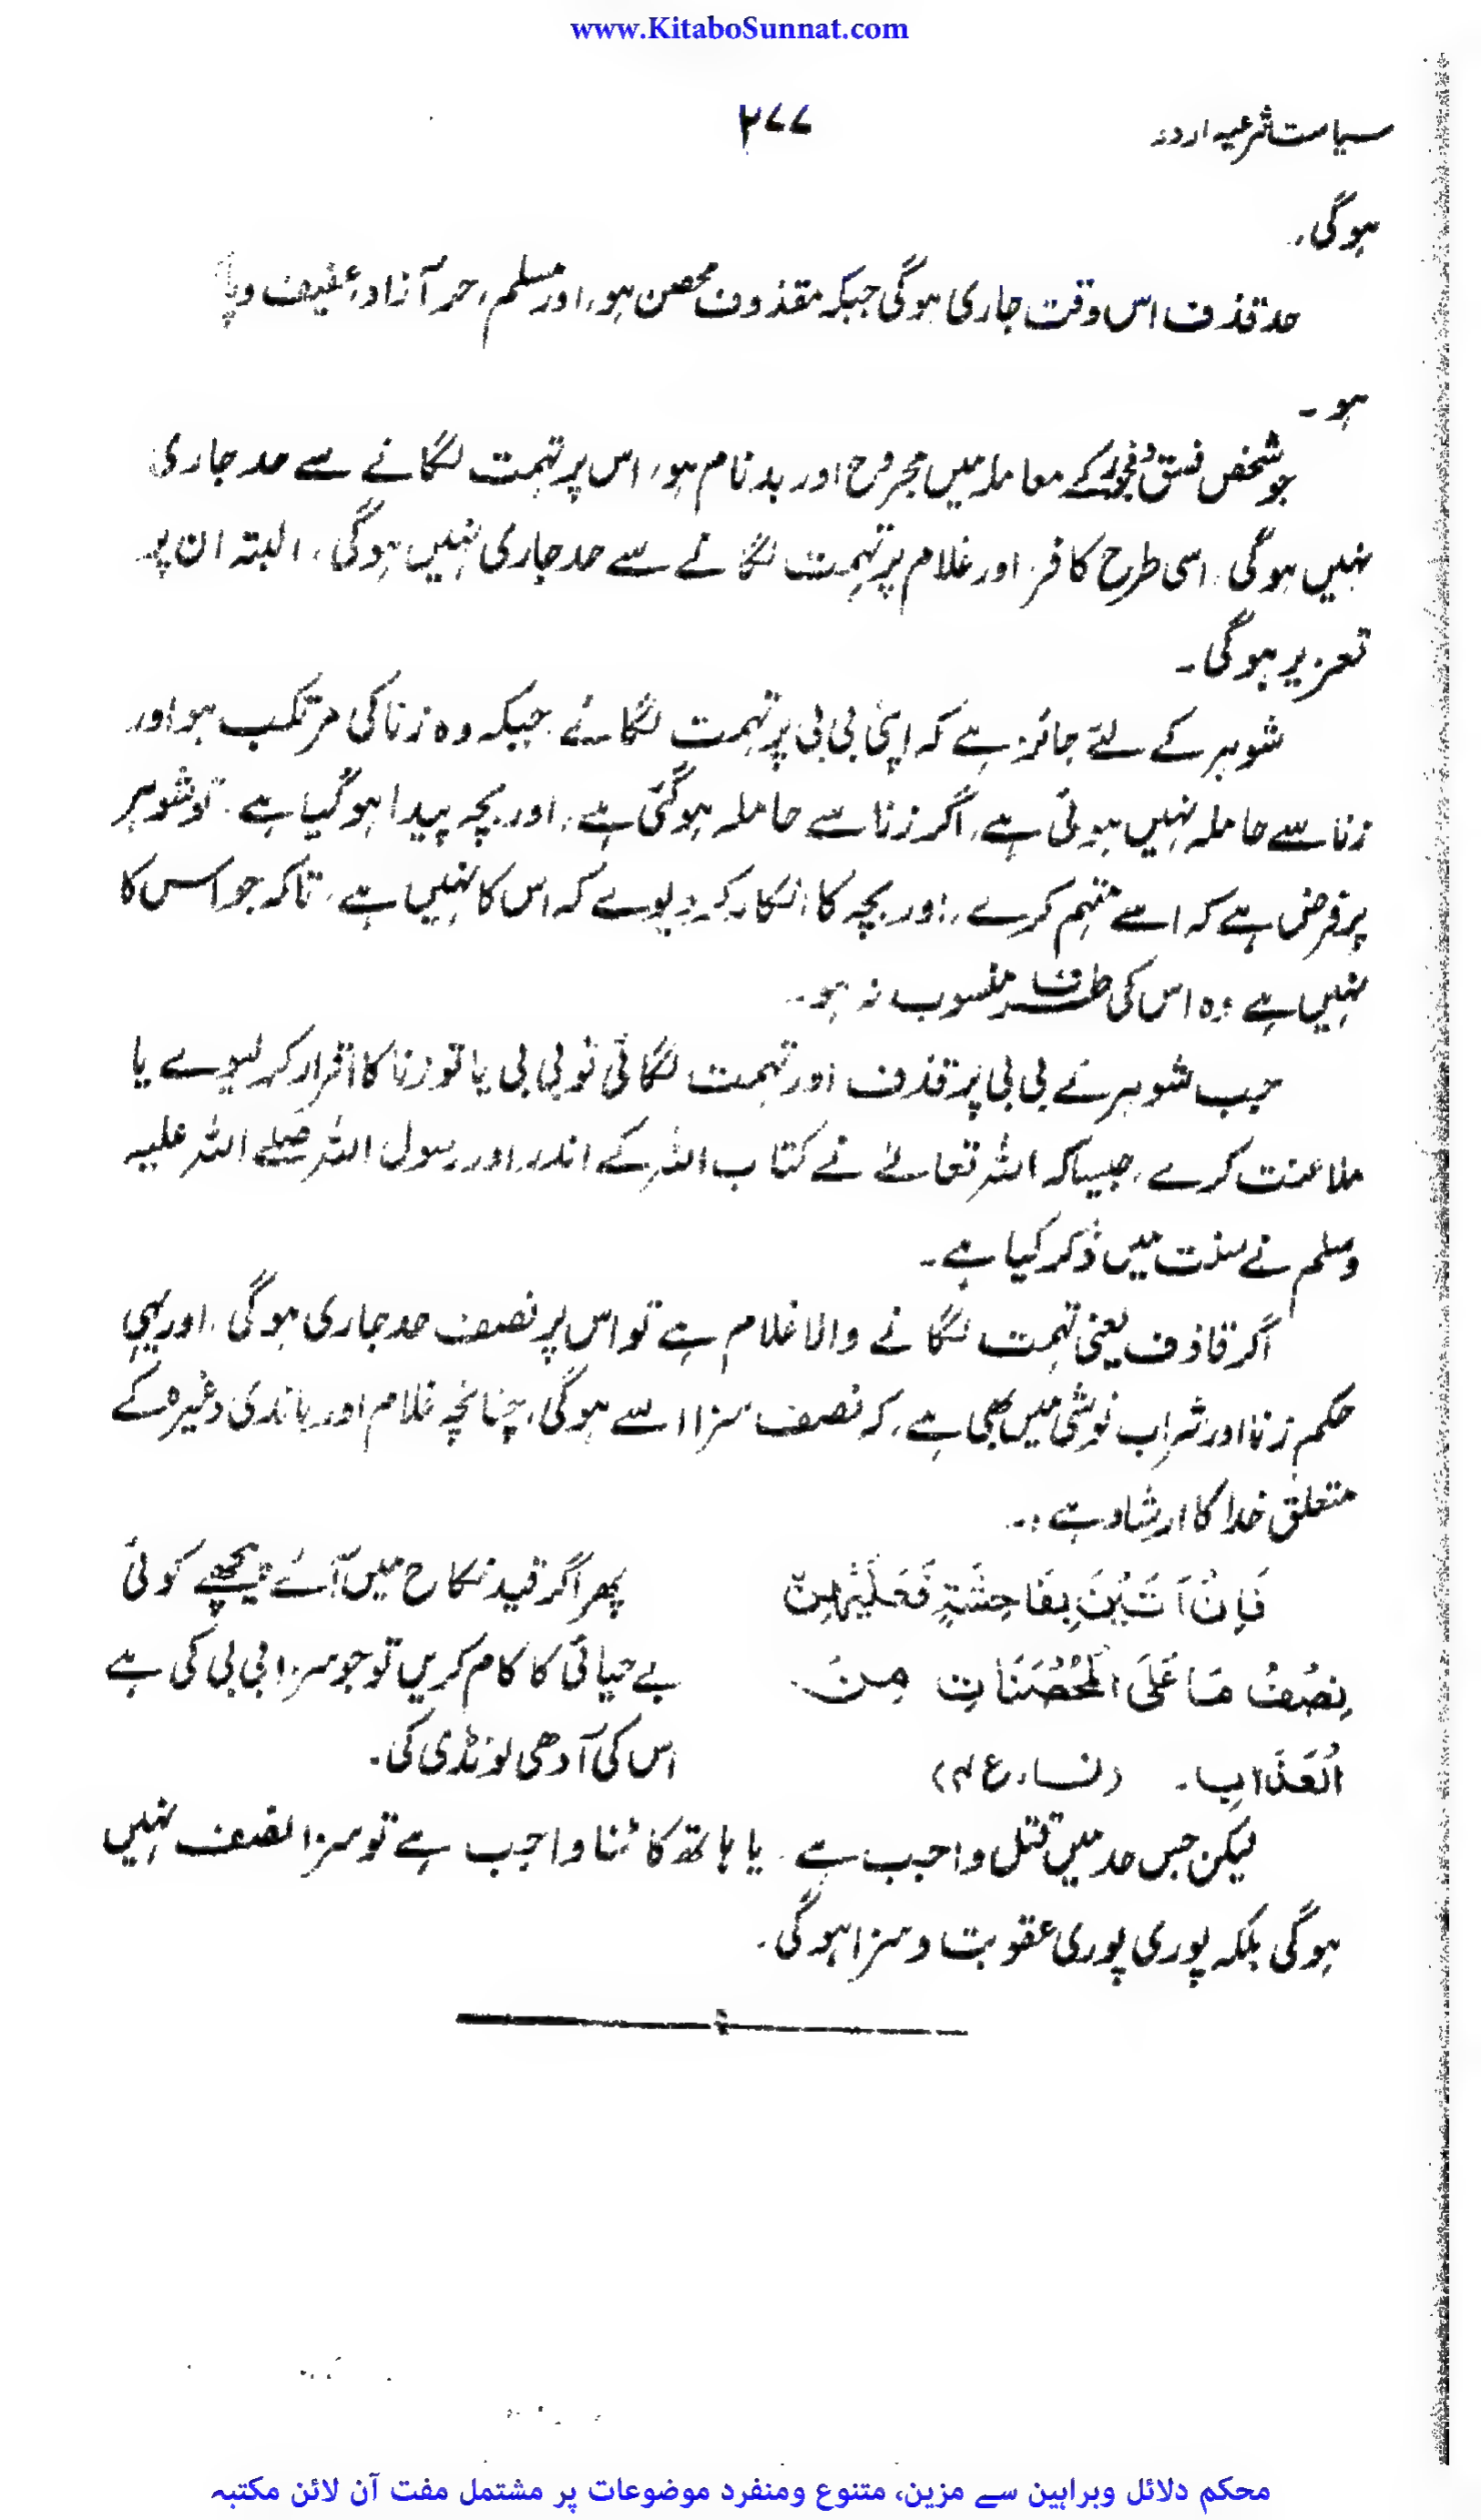 www.KitaboSunnat.com
سیاست شرعیہ اردو
۲۷۷
ہوگی۔
حد قذف اس وقت جاری ہوگی جبکہ مقذوف محصن ہو، اور مسلم، حر آزاد، عفیف و
ہو۔
جو شخص فسق و فجور کے معاملہ میں مجروح اور بدنام ہو، اس پر تہمت لگانے سے حد جاری
نہیں ہوگی، اسی طرح کافر، اور غلام پر تہمت لگانے سے حد جاری نہیں ہوگی، البتہ ان پر
تعزیر ہوگی۔
شوہر کے لئے جائز ہے کہ اپنی بی بی پر تہمت لگائے، جبکہ وہ زنا کی مرتکب ہو اور
زنا سے حاملہ نہیں ہوئی ہے، اگر زنا سے حاملہ ہوگئی ہے، اور بچہ پیدا ہوگیا ہے، تو شوہر
پر فرض ہے کہ اسے متہم کرے، اور بچہ کا انکار کر دیوے کہ اس کا نہیں ہے، تاکہ جو اس کا
نہیں ہے وہ اس کی طرف منسوب نہ ہو۔
جب شوہر نے بی بی پر قذف اور تہمت لگائی تو بی بی یا تو زنا کا اقرار کر لیوے یا
ملاعنت کرے، جیسا کہ اللہ تعالےٰ نے کتاب اللہ کے اندر اور رسول اللہ صلے اللہ علیہ
وسلم نے سنت میں ذکر کیا ہے۔
اگر قاذف یعنی تہمت لگانے والا غلام ہے تو اس پر نصف حد جاری ہوگی، اور یہی
حکم زنا اور شراب نوشی میں بھی ہے، کہ نصف سزا اسے ہوگی، چنانچہ غلام اور باندی وغیرہ کے
متعلق خدا کا ارشاد ہے:۔
فَاِنْ اَتَیْنَ بِفَاحِشَۃٍ فَعَلَیْہِنَّ
نِصْفُ مَا عَلَی الْمُحْصَنَاتِ مِنَ
الْعَذَابِ۔ (نساء ع ۴)
پھر اگر قید نکاح میں آئے پیچھے کوئی
بے حیائی کا کام کریں تو جو سزا بی بی کی ہے
اس کی آدھی لونڈی کی۔
لیکن جس حد میں قتل واجب ہے، یا ہاتھ کاٹنا واجب ہے تو سزا نصف نہیں
ہوگی بلکہ پوری پوری عقوبت و سزا ہوگی۔
محکم دلائل وبراہین سے مزین، متنوع ومنفرد موضوعات پر مشتمل مفت آن لائن مکتبہ